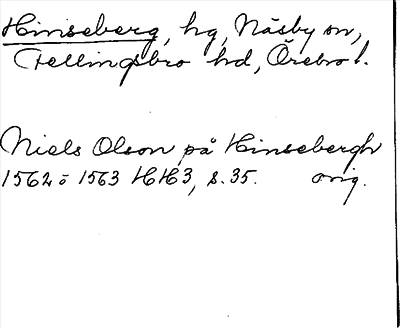 Hinseberg, hg, Näsby sn,
Fellingsbro hd, Örebro l.
Niels Olson på Hinsebergh
1562 ō 1563 HH3, s. 35. orig.